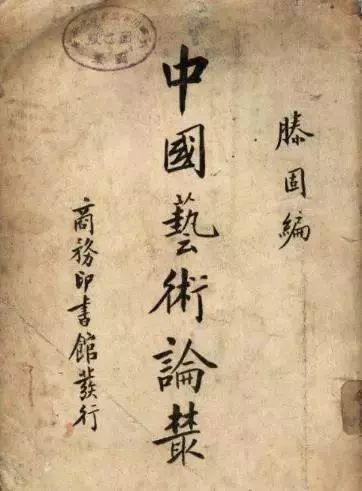 滕固编
中國藝術論叢
商務印書館發行